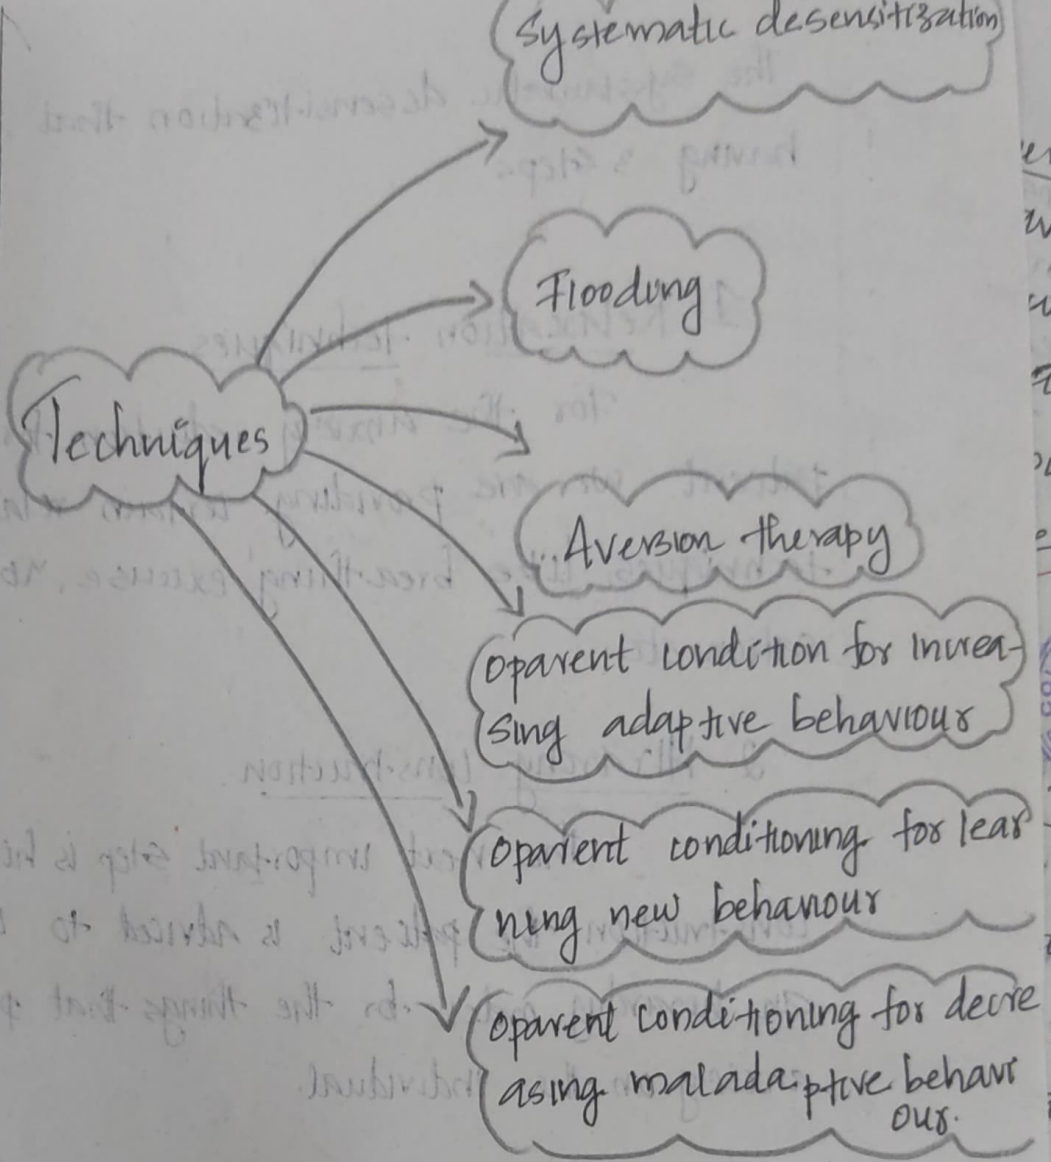 Systematic desensitization
Flooding
Techniques
Aversion therapy
Oparent condition for increa-
sing adaptive behaviour
Oparent conditioning for lear
ning new behaviour
Oparent conditioning for decre
asing maladaptive behavi
our.